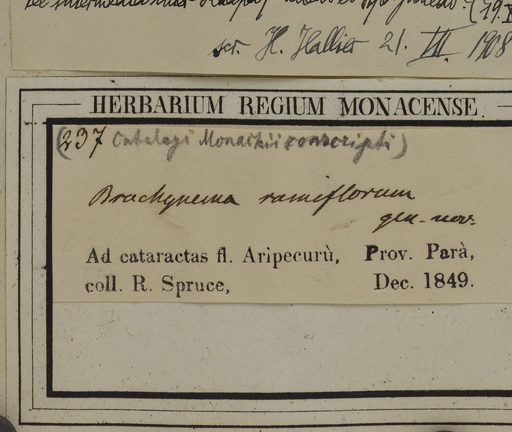 scr. H. Hallier 21. III. 1908
HERBARIUM REGIUM MONACENSE
(237 Catalogi Monachii conscripti)
Brachynema ramiflorum
gen. nov.
Ad cataractas fl. Aripecurù, Prov. Parà,
coll. R. Spruce, Dec. 1849.